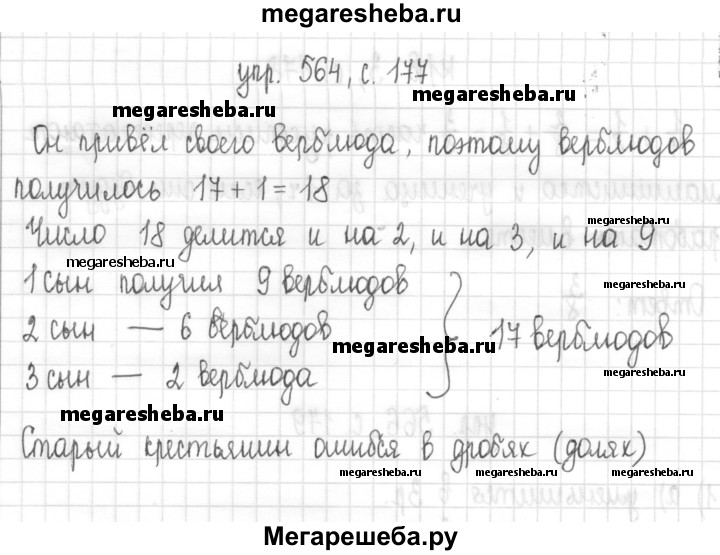 megaresheba.ru
упр. 564, с. 177
megaresheba.ru
megaresheba.ru
megaresheba.ru
Он привёл своего верблюда, поэтому верблюдов
получилось 17 + 1 = 18
megaresheba.ru
Число 18 делится и на 2, и на 3, и на 9
megaresheba.ru
megaresheba.ru
1 сын получил 9 верблюдов
2 сын — 6 верблюдов
17 верблюдов
megaresheba.ru
3 сын — 2 верблюда
megaresheba.ru
Старый крестьянин ошибся в дробях (долях)
megaresheba.ru
megaresheba.ru
megaresheba.ru
Мегарешеба.ру